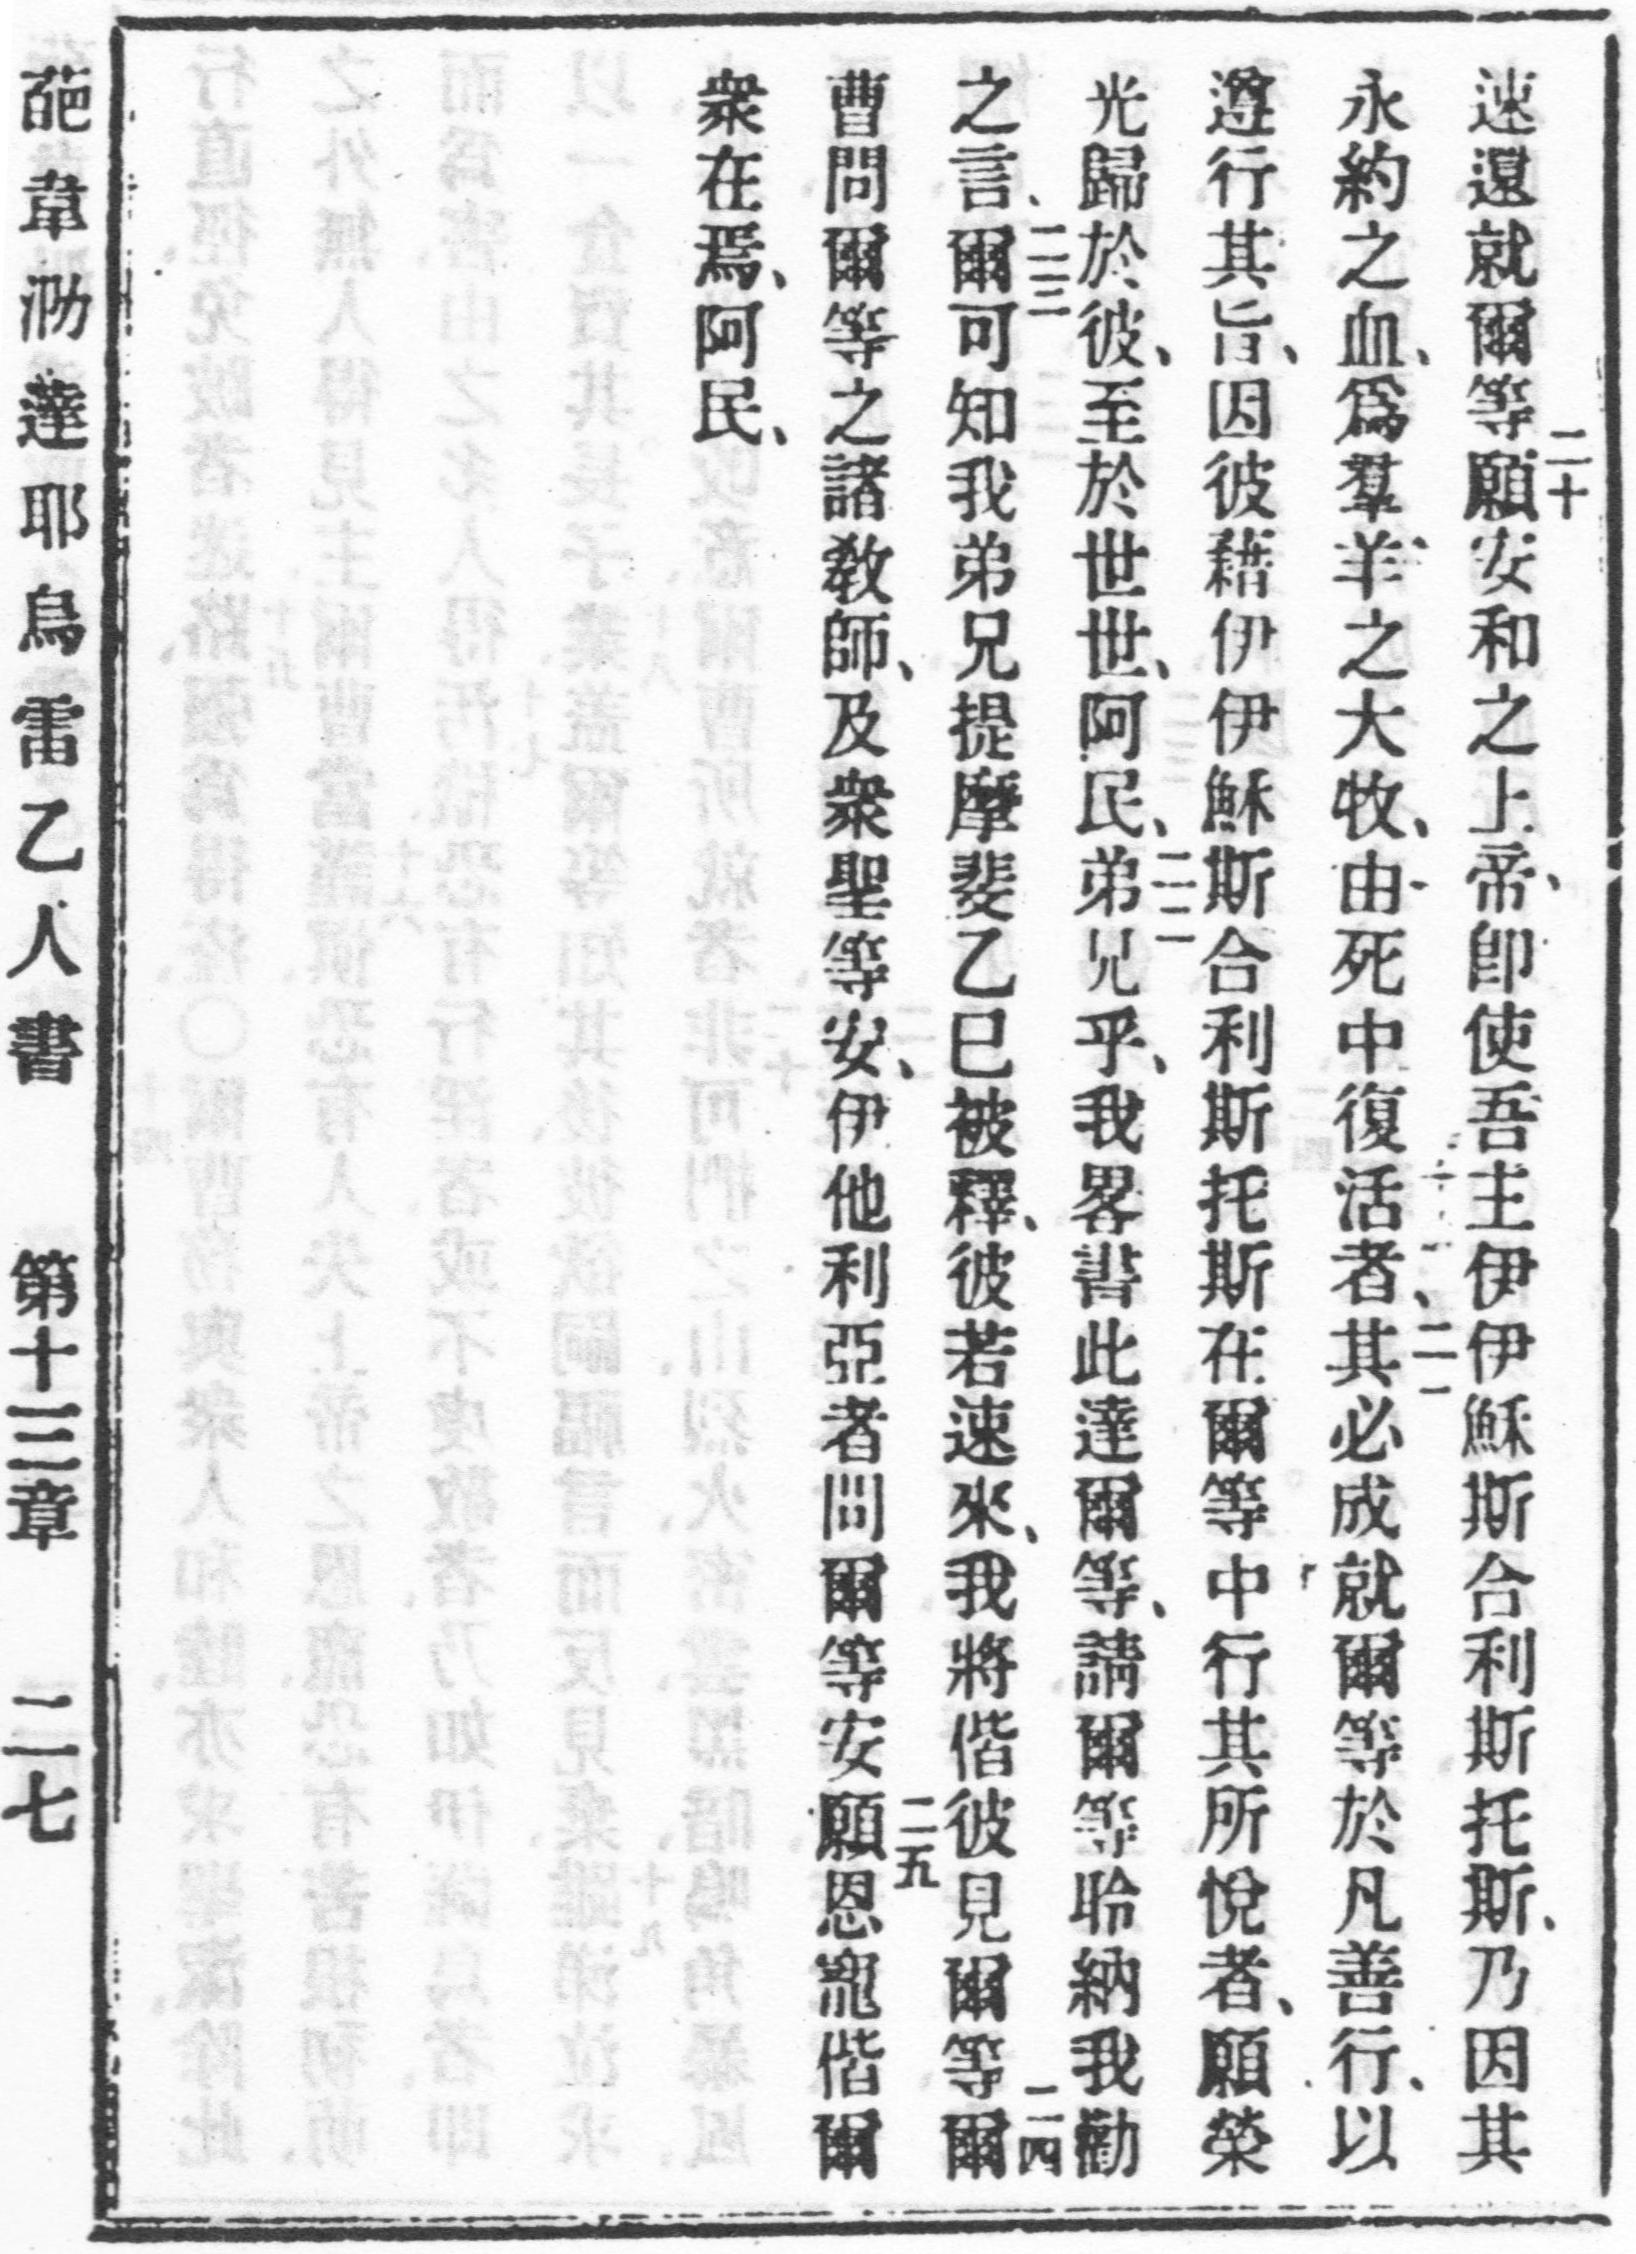 速還就爾等二十願安和之上帝、卽使吾主伊伊穌斯合利斯托斯、乃因其
永約之血、爲羣羊之大牧、由死中復活者、二一其必成就爾等於凡善行、以
遵行其旨、因彼藉伊伊穌斯合利斯托斯在爾等中行其所悅者、願榮
光歸於彼、至於世世、阿民、二二弟兄乎、我畧書此達爾等、請爾等聆納我勸
之言、二三爾可知我弟兄提摩斐乙巳被釋、彼若速來、我將偕彼見爾等二四爾
曹問爾等之諸敎師、及衆聖等安、伊他利亞者問爾等安二五願恩寵偕爾
衆在焉、阿民、
葩韋泐薘耶烏雷乙人書 第十三章 二七